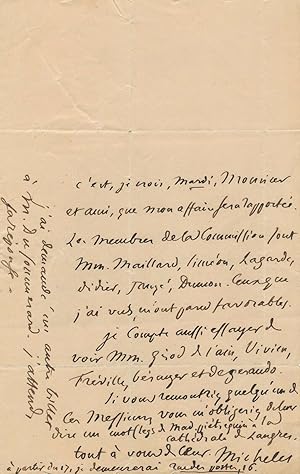 c'est, je crois, Mardi, Monsieur
et ami, que mon affaire sera rapportée.
Les membres de la Commission sont
Mm. Maillard, Siméon, Lagarde,
Didier, Janzé, Dumon. Ceux que
j'ai vus, m'ont paru favorables.
je compte aussi essayer de
voir Mm. Girod de l'ain, Vivien,
Fréville, bérenger et degerando.
Si vous rencontriez quelqu'un de
ces Messieurs, vous m'obligeriez de leur
dire un mot
cathédrale de Langres.
tout à vous de cœur Michelet
à partir du 17, je demeurerai rue des postes, 16.
j'ai demandé un autre billet
à M. Du Sommerard. j'attends
sa réponse.